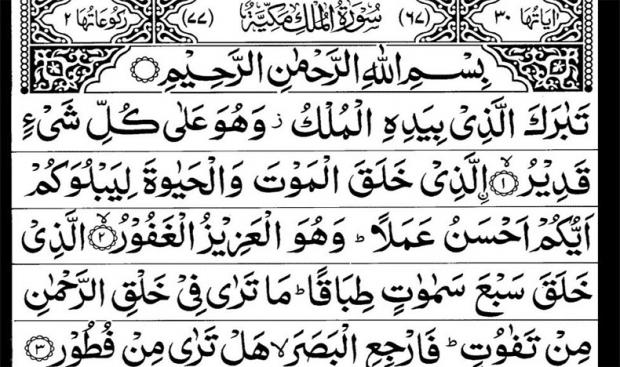 اٰیَاتُهَا ٣٠ (٦٧) سُوْرَةُ الْمُلْكِ مَكِّیَّةٌ (٧٧) رُكُوْعَاتُهَا ٢
بِسْمِ اللّٰهِ الرَّحْمٰنِ الرَّحِیْمِ
تَبٰرَكَ الَّذِیْ بِیَدِهِ الْمُلْكُ ز وَهُوَ عَلٰی كُلِّ شَیْءٍ
قَدِیْرُ ۙ﴿١﴾ نِ الَّذِیْ خَلَقَ الْمَوْتَ وَالْحَیٰوةَ لِیَبْلُوَكُمْ
اَیُّكُمْ اَحْسَنُ عَمَلًا ؕ وَهُوَ الْعَزِیْزُ الْغَفُوْرُ ۙ﴿٢﴾ الَّذِیْ
خَلَقَ سَبْعَ سَمٰوٰتٍ طِبَاقًا ؕ مَا تَرٰی فِیْ خَلْقِ الرَّحْمٰنِ
مِنْ تَفٰوُتٍ ؕ فَارْجِعِ الْبَصَرَ ۙ هَلْ تَرٰی مِنْ فُطُوْرٍ ﴿٣﴾